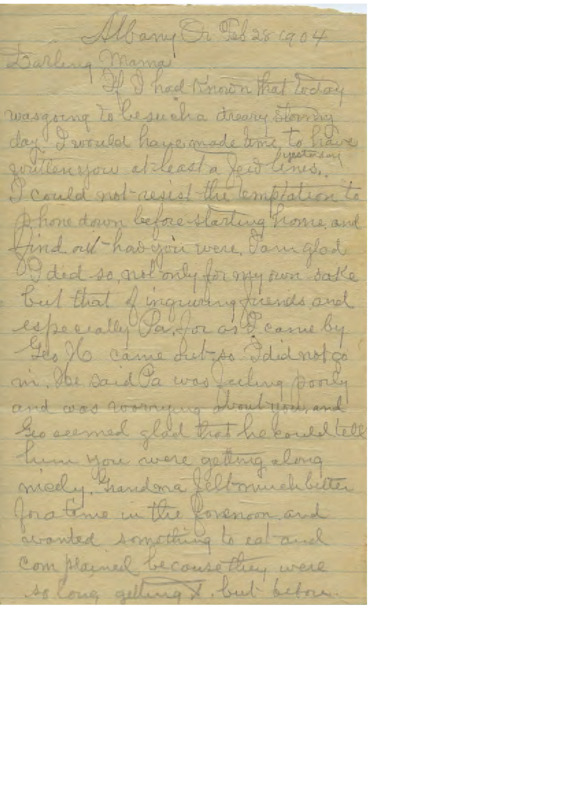 Albany Or Feb 28 1904
Darling Mama
If I had known that today
was going to be such a dreary stormy
day I would have made time to have
yesterday
written you at least a few lines.
I could not resist the temptation to
phone down before starting home, and
find out how you were, I am glad
I did so, not only for my own sake
but that of inquiring friends and
especially Pa, for as I came by
Geo H came out so I did not go
in. He said Pa was feeling poorly
and was worrying about you, and
Geo seemed glad that he could tell
him you were getting along
nicely. Grandma felt much better
for a time in the forenoon and
wanted something to eat and
complained because they were
so long getting it, but before